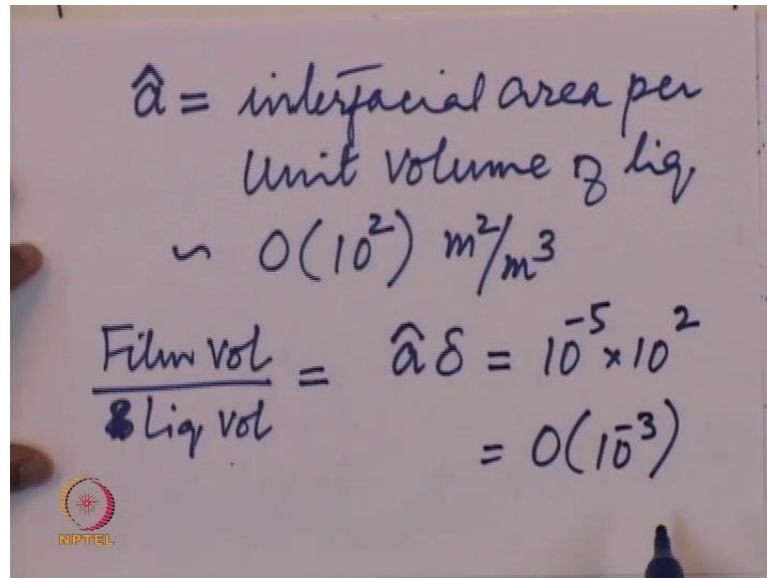 â = interfacial area per
unit volume of liq.
~ O(10²) m²/m³
Film vol / Liq vol = â δ = 10⁻⁵ × 10²
= O(10⁻³)
NPTEL